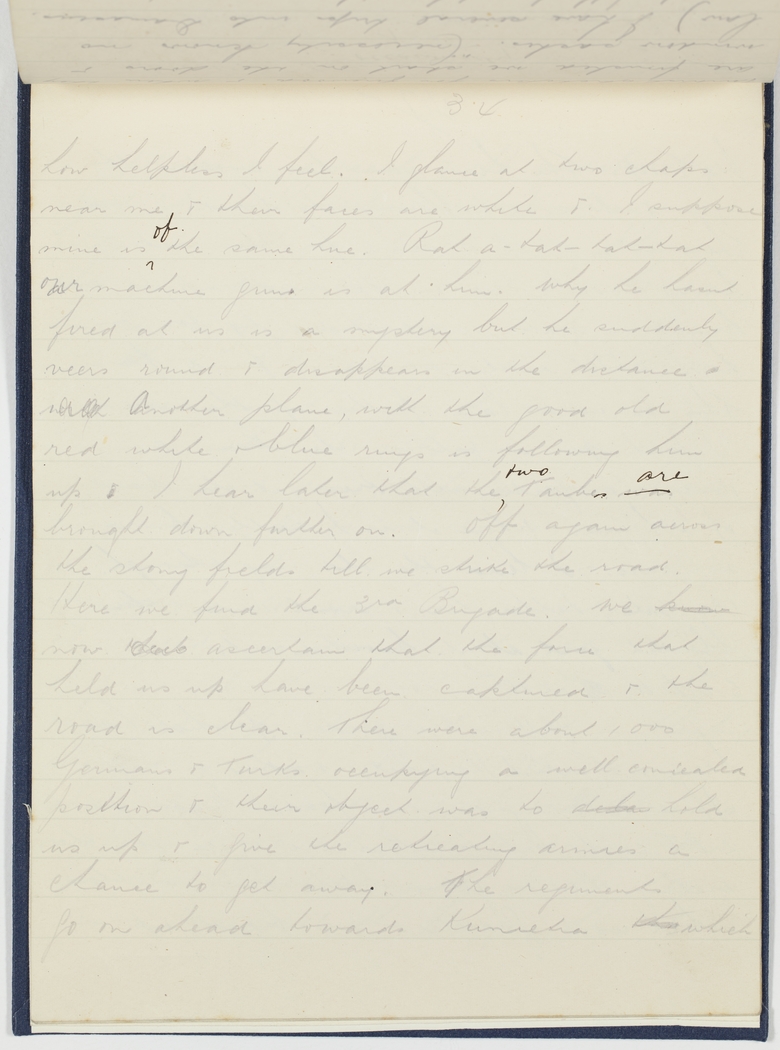 34
how helpless I feel. I glance at two chaps
near me & their faces are white &. I suppose
mine is of the same hue. Rat a-tat-tat-tat
our machine guns is at him. Why he hasnt
fired at us is a mystery but he suddenly
veers round & disappears in the distance
Another plane, with the good old
red white & blue rings is following him
up I hear later that the two Taubes are
brought down further on. Off again across
the stony fields till we strike the road.
Here we find the 3rd Brigade. We
now ascertain that the force that
held us up have been captured & the
road is clear. There were about 1,000
Germans & Turks occupying a well concealed
position & their object was to hold
us up & give the retreating armies a
chance to get away. The regiments
go on ahead towards Kunietra which